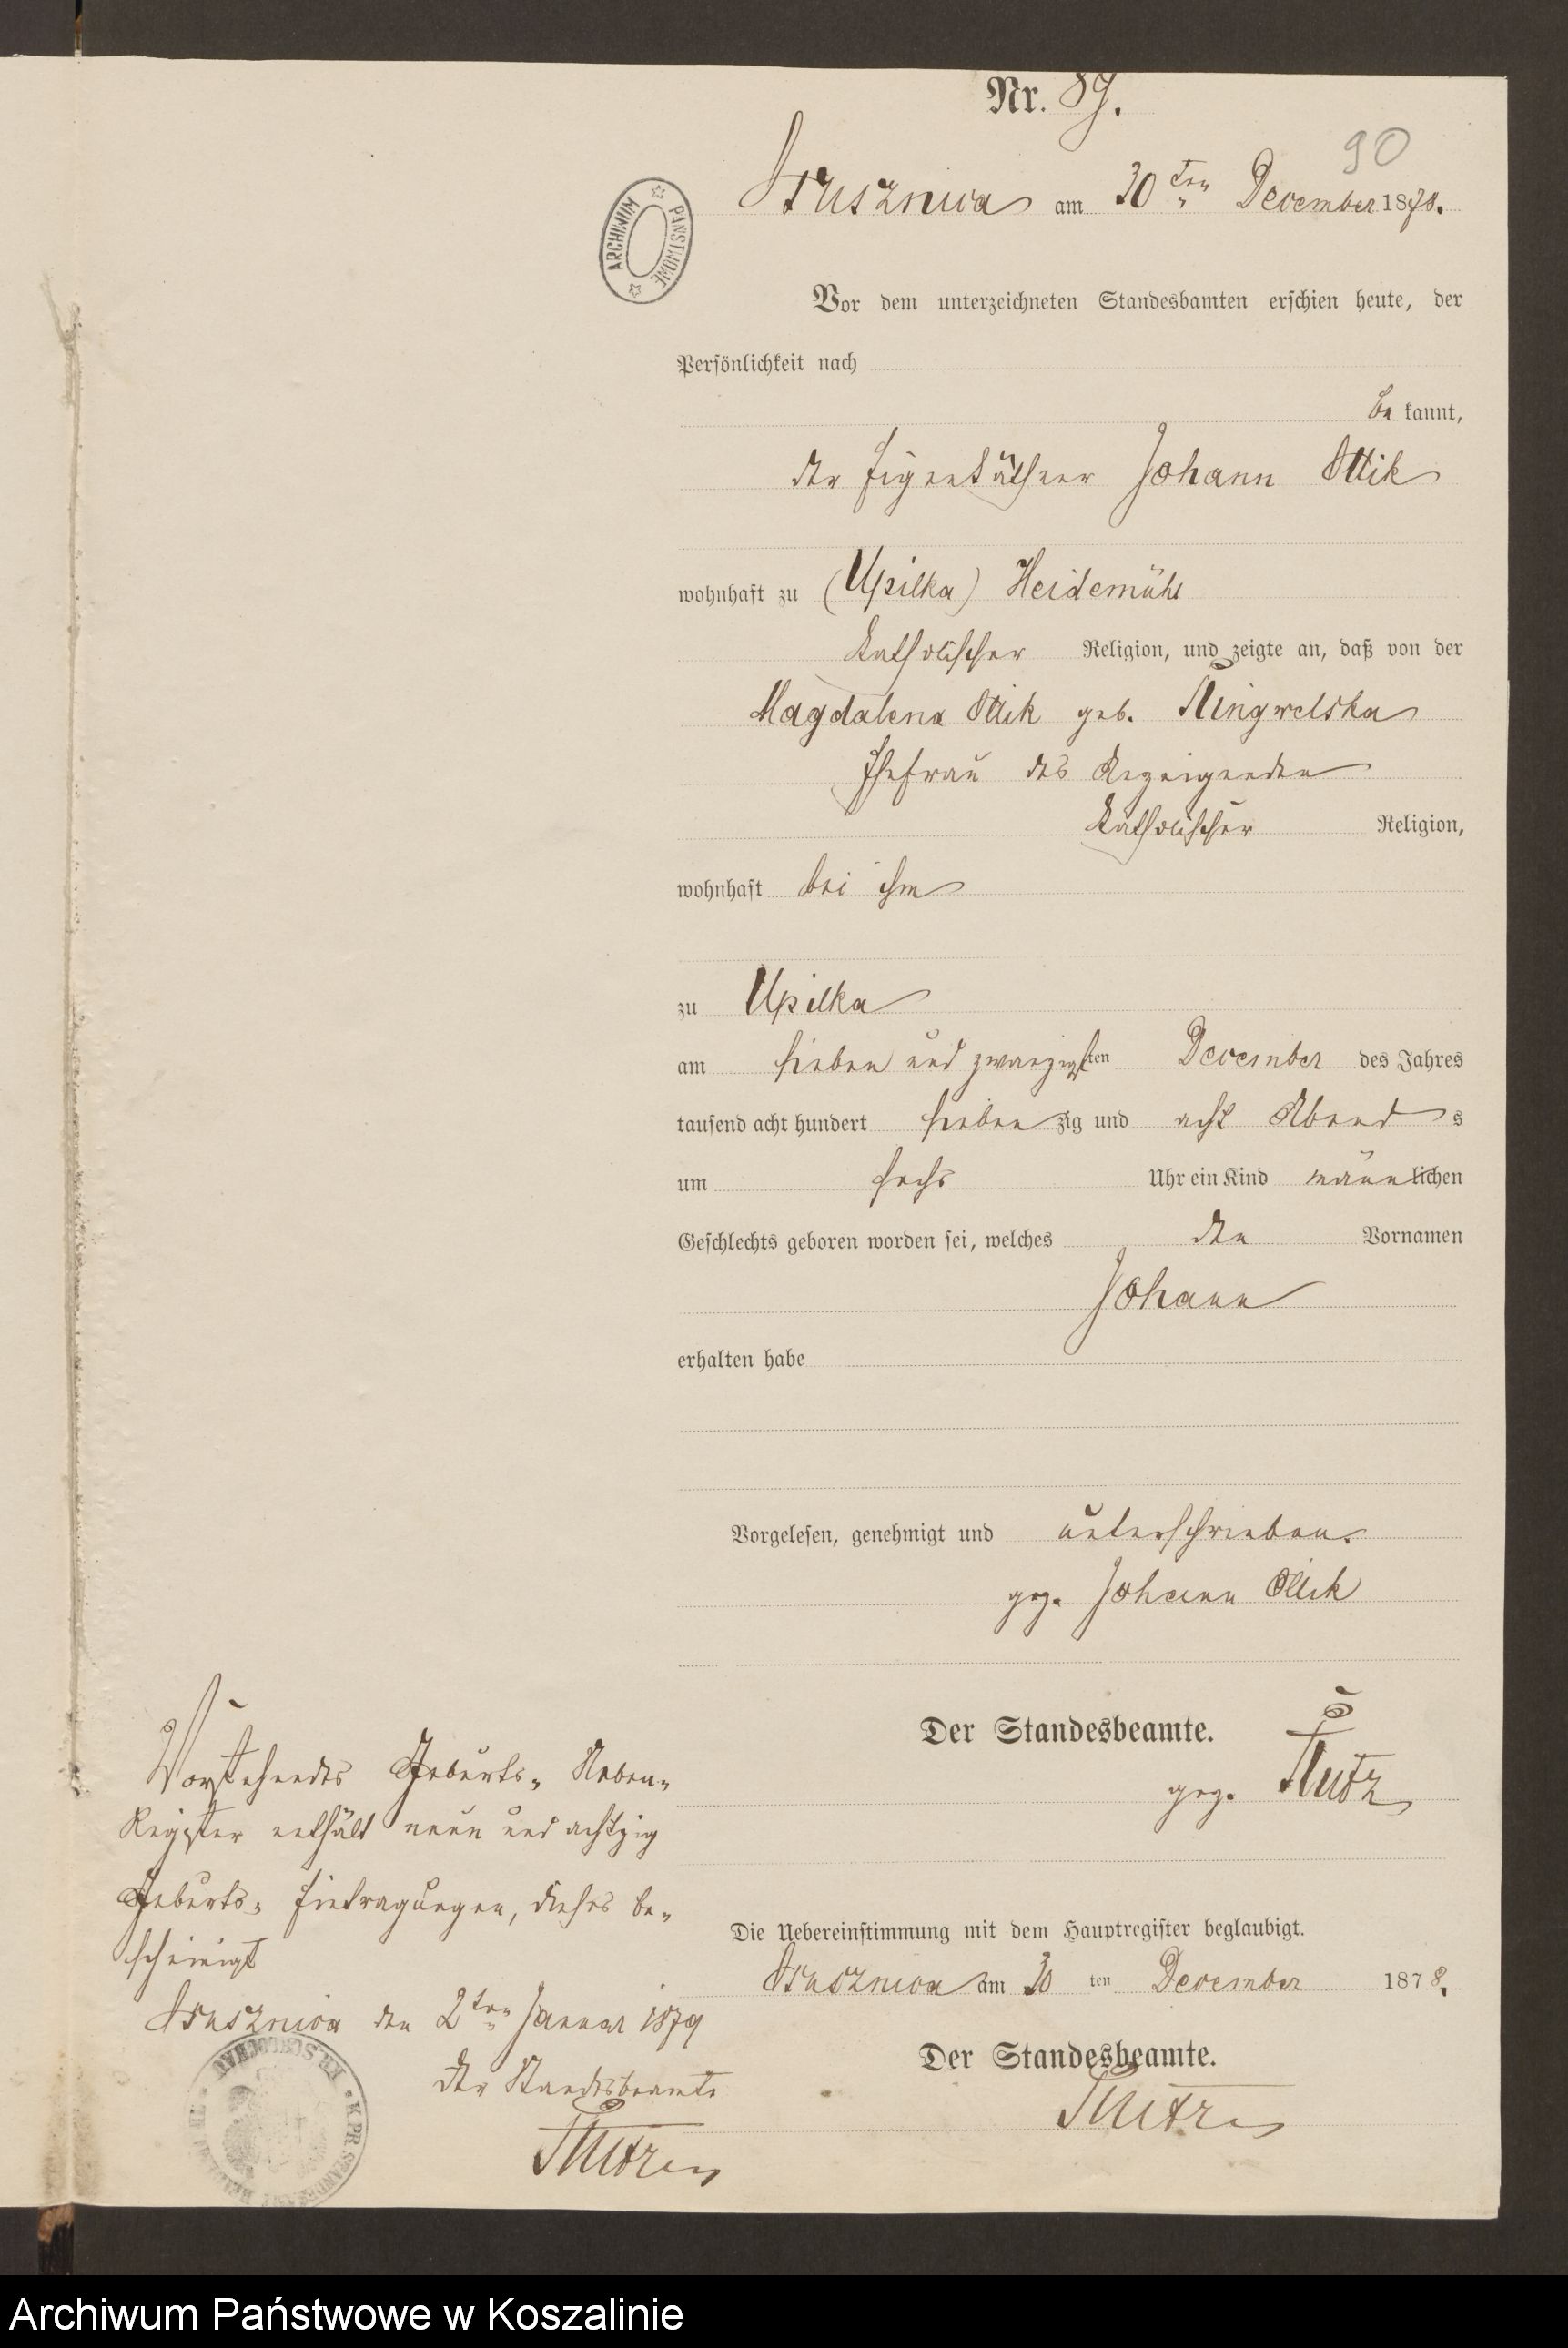 Nr. 89.
90
Osusznica am 30ten December 1878.
ARCHIWUM PAŃSTWOWE
Vor dem unterzeichneten Standesbamten erschien heute, der
Persönlichkeit nach
be kannt,
der Eigenkäthner Johann Ollik
wohnhaft zu (Upilka) Heidemühl
katholischer Religion, und zeigte an, daß von der
Magdalena Ollik geb.
Ehefrau des Anzeigenden
katholischer Religion,
wohnhaft bei ihm
zu Upilka
am sieben und zwanzigsten December des Jahres
tausend acht hundert sieben zig und acht Abend s
um sechs Uhr ein Kind männlichen
Geschlechts geboren worden sei, welches den Vornamen
Johann
erhalten habe
Vorgelesen, genehmigt und unterschrieben.
gez. Johann Ollik
Der Standesbeamte.
gez.
Die Uebereinstimmung mit dem Hauptregister beglaubigt.
Osusznica am 30 ten December 1878.
Der Standesbeamte.
Vorstehendes Geburts-Neben-
Register enthält neun und achtzig
Geburts-Eintragungen, dieses be-
scheinigt
Osusznica den 2ten Januar 1879
Der Standesbeamte
KR. SCHLOCHAU
K. PR. STANDESAMT
Archiwum Państwowe w Koszalinie